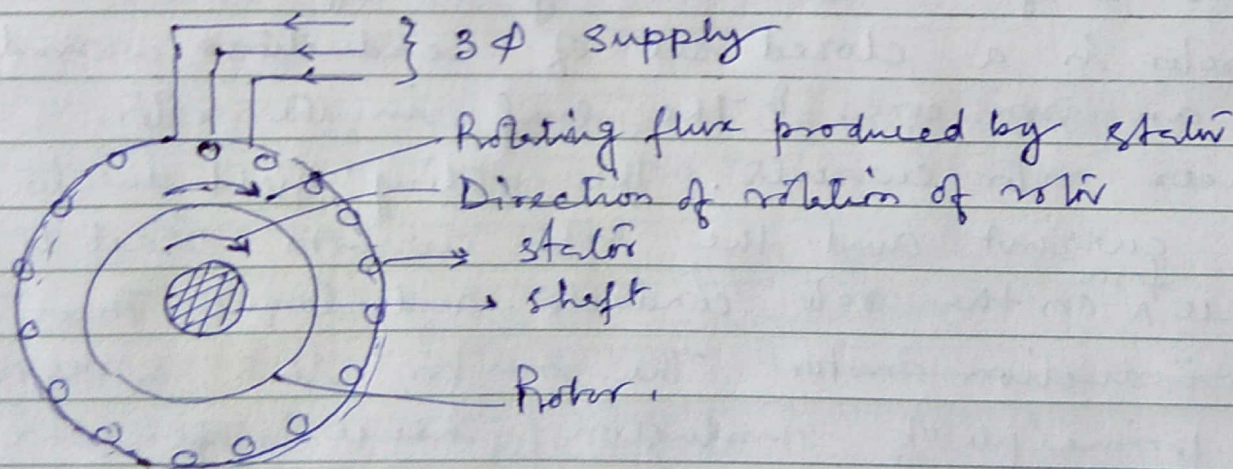 3 ϕ supply
Rotating flux produced by stator
Direction of rotation of rotor
stator
shaft
Rotor.